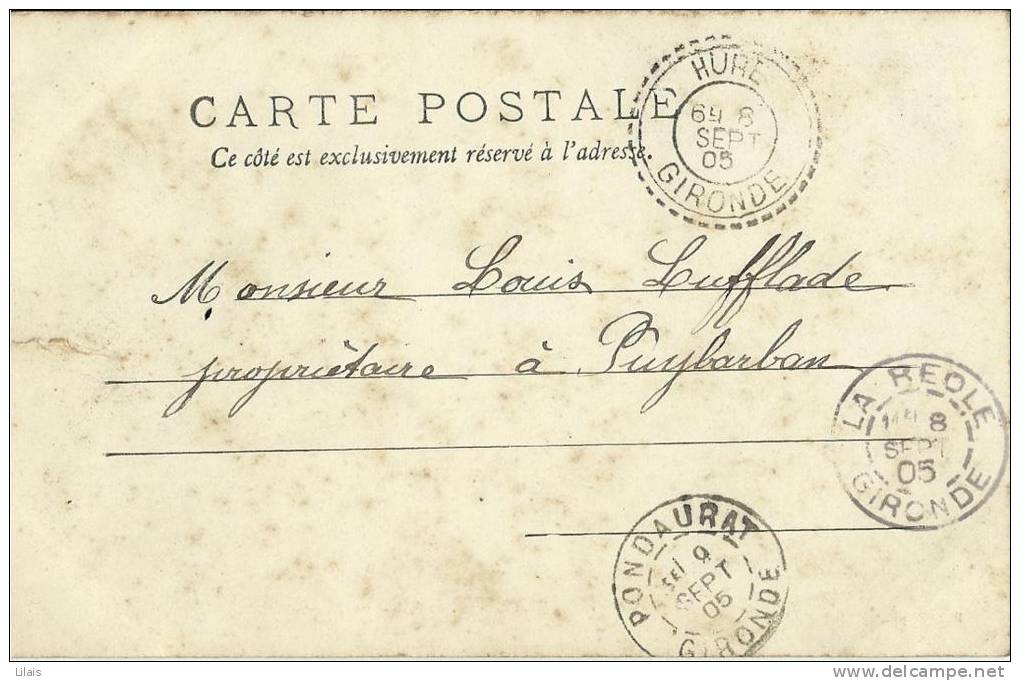 CARTE POSTALE
Ce côté est exclusivement réservé à l'adresse.
HURE
8
SEPT
05
GIRONDE
Monsieur Louis Lufflade
propriétaire à Puybarban
LA REOLE
8
SEPT
05
GIRONDE
PONDAURAT
9
SEPT
05
GIRONDE
Lilais
www.delcampe.net